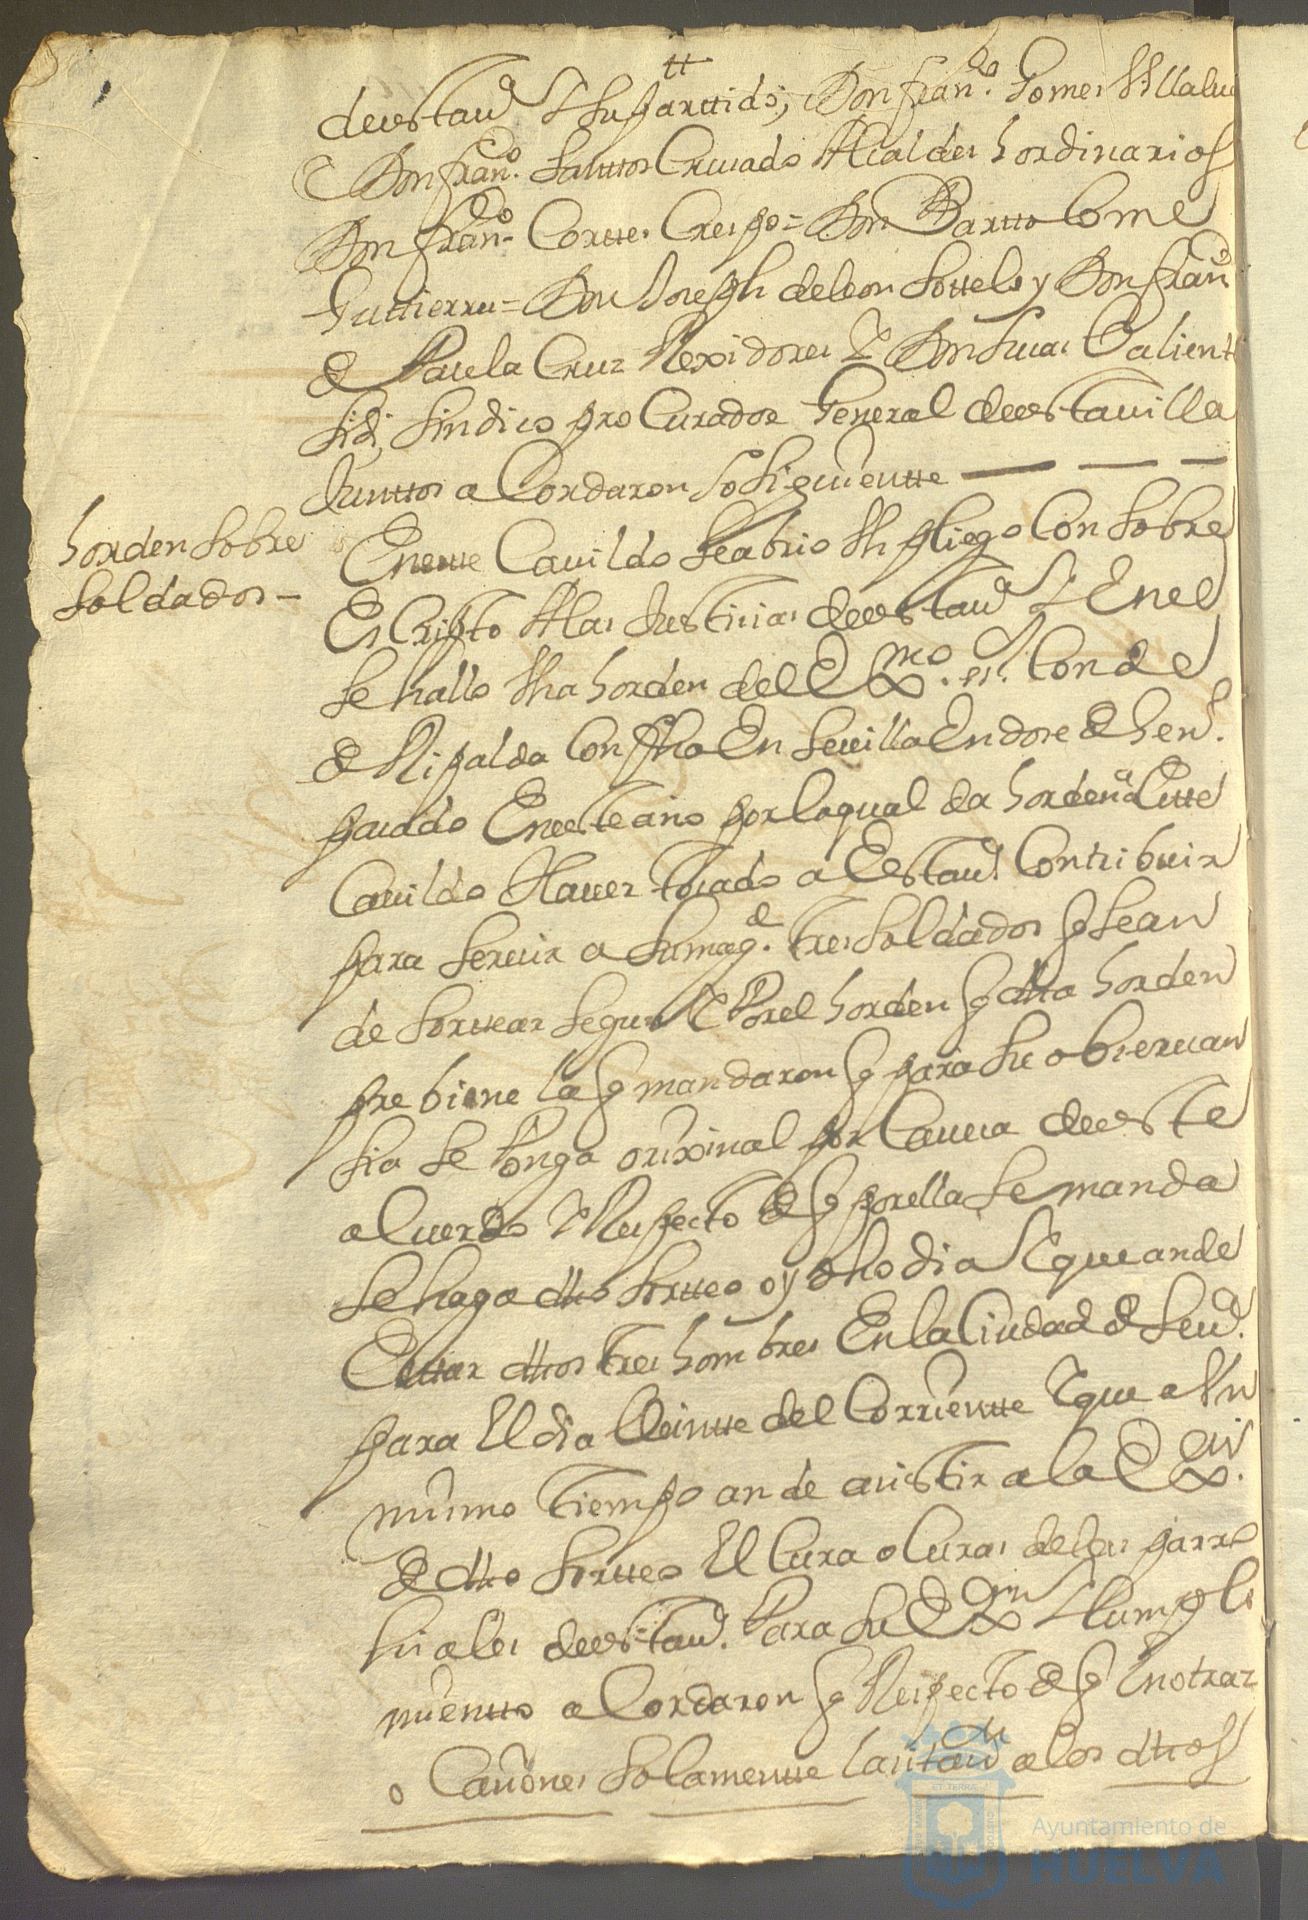 de esta uª. y su partido, Don franco. Gomes Villalva
Don franco. Santtos Cruzado Alcaldes hordinarios
Don franco. Corttes Crespo = Don Barttolome
Guttierrez = Don Joseph de leon Sottelo y Don fran
de Paula Cruz Rexidores y Don Lucas Valiente
Sindico procurador General de esta uilla
Junttos acordaron lo siguientte
horden sobre
soldados =
En este Cauildo se abrio un pliego Con sobre
Escripto a las Justicias de esta uª. y En el
se hallo una horden del Exmo. sr. Conde
de Ripalda Con fha En Seuilla En dose de hen.
pasado En este año por la qual da horden a Este
Cauildo Hauer tocado a Esta uª. Contribuir
para seruir a su magd. tres soldados q sean
de sorttear segun y Por el horden q dha horden
prebiene la q mandaron q para su obseruan
sia se Ponga orixinal por Caueza de este
acuerdo y Respecto de q por ella se manda
se haga dho sortteo oy dho dia y que an de
Estar dhos tres hombres En la Ciudad de Seua.
para El dia Veintte del Corrientte y que a Un
mismo tiempo an de asistir a la Exon.
de dho sortteo El Cura o Curas de las parro
quiales de esta uª. Para su Exon y Cumpli
mientto acordaron q Respecto de q En otras
ocaciones solamentte a los dhos
Ayuntamiento de
HUELVA